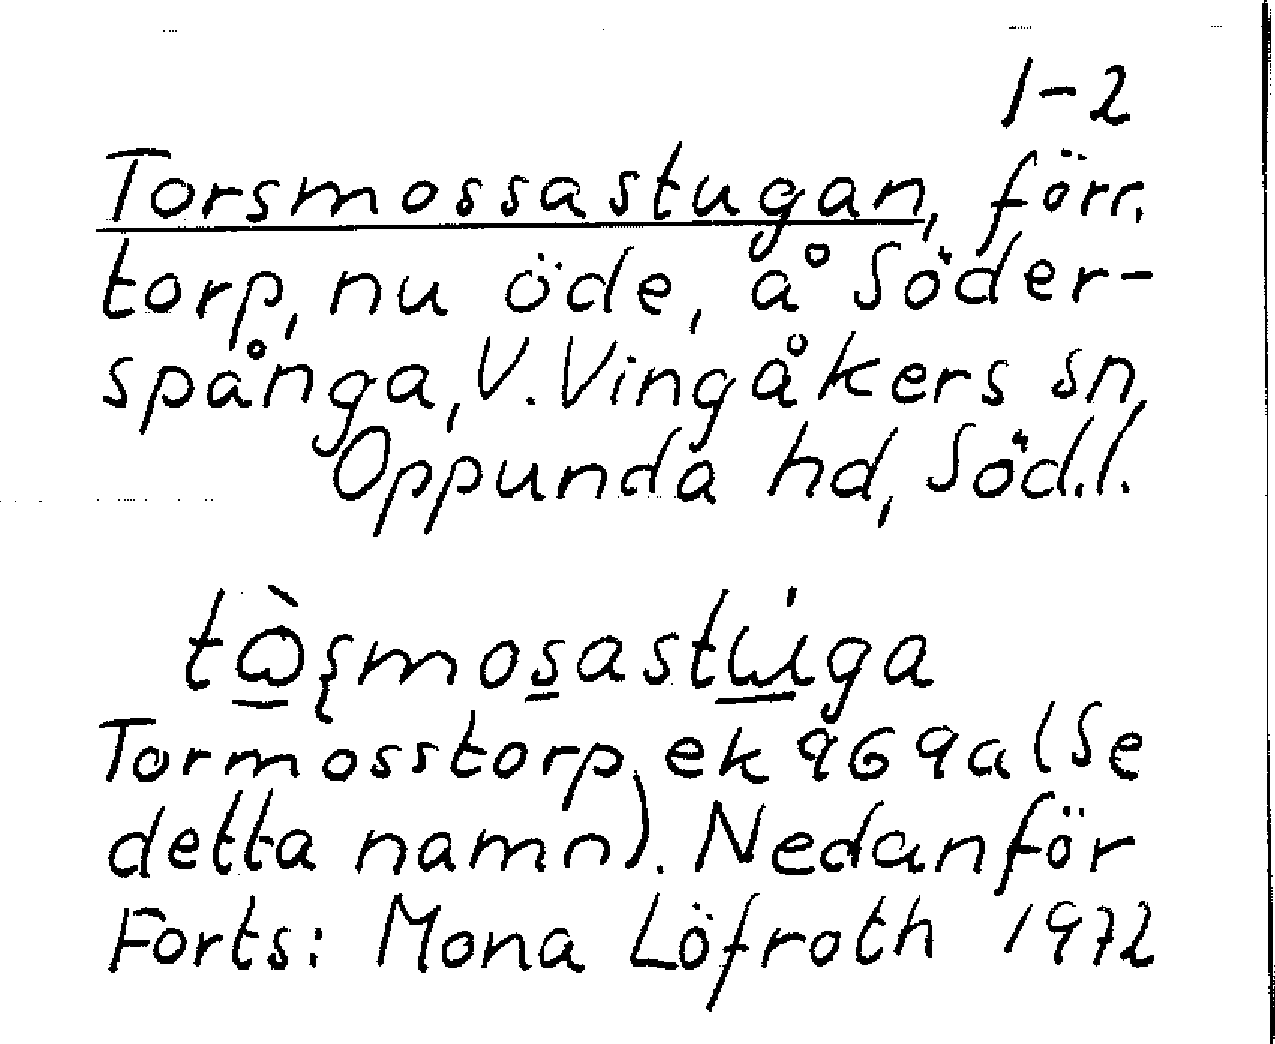 1-2
Torsmossastugan, förr.
torp, nu öde, å Söder-
spånga, V. Vingåkers sn,
Oppunda hd, Söd.l.
Tormosstorp, ek 969a (Se
detta namn). Nedanför
Forts: Mona Löfroth 1972